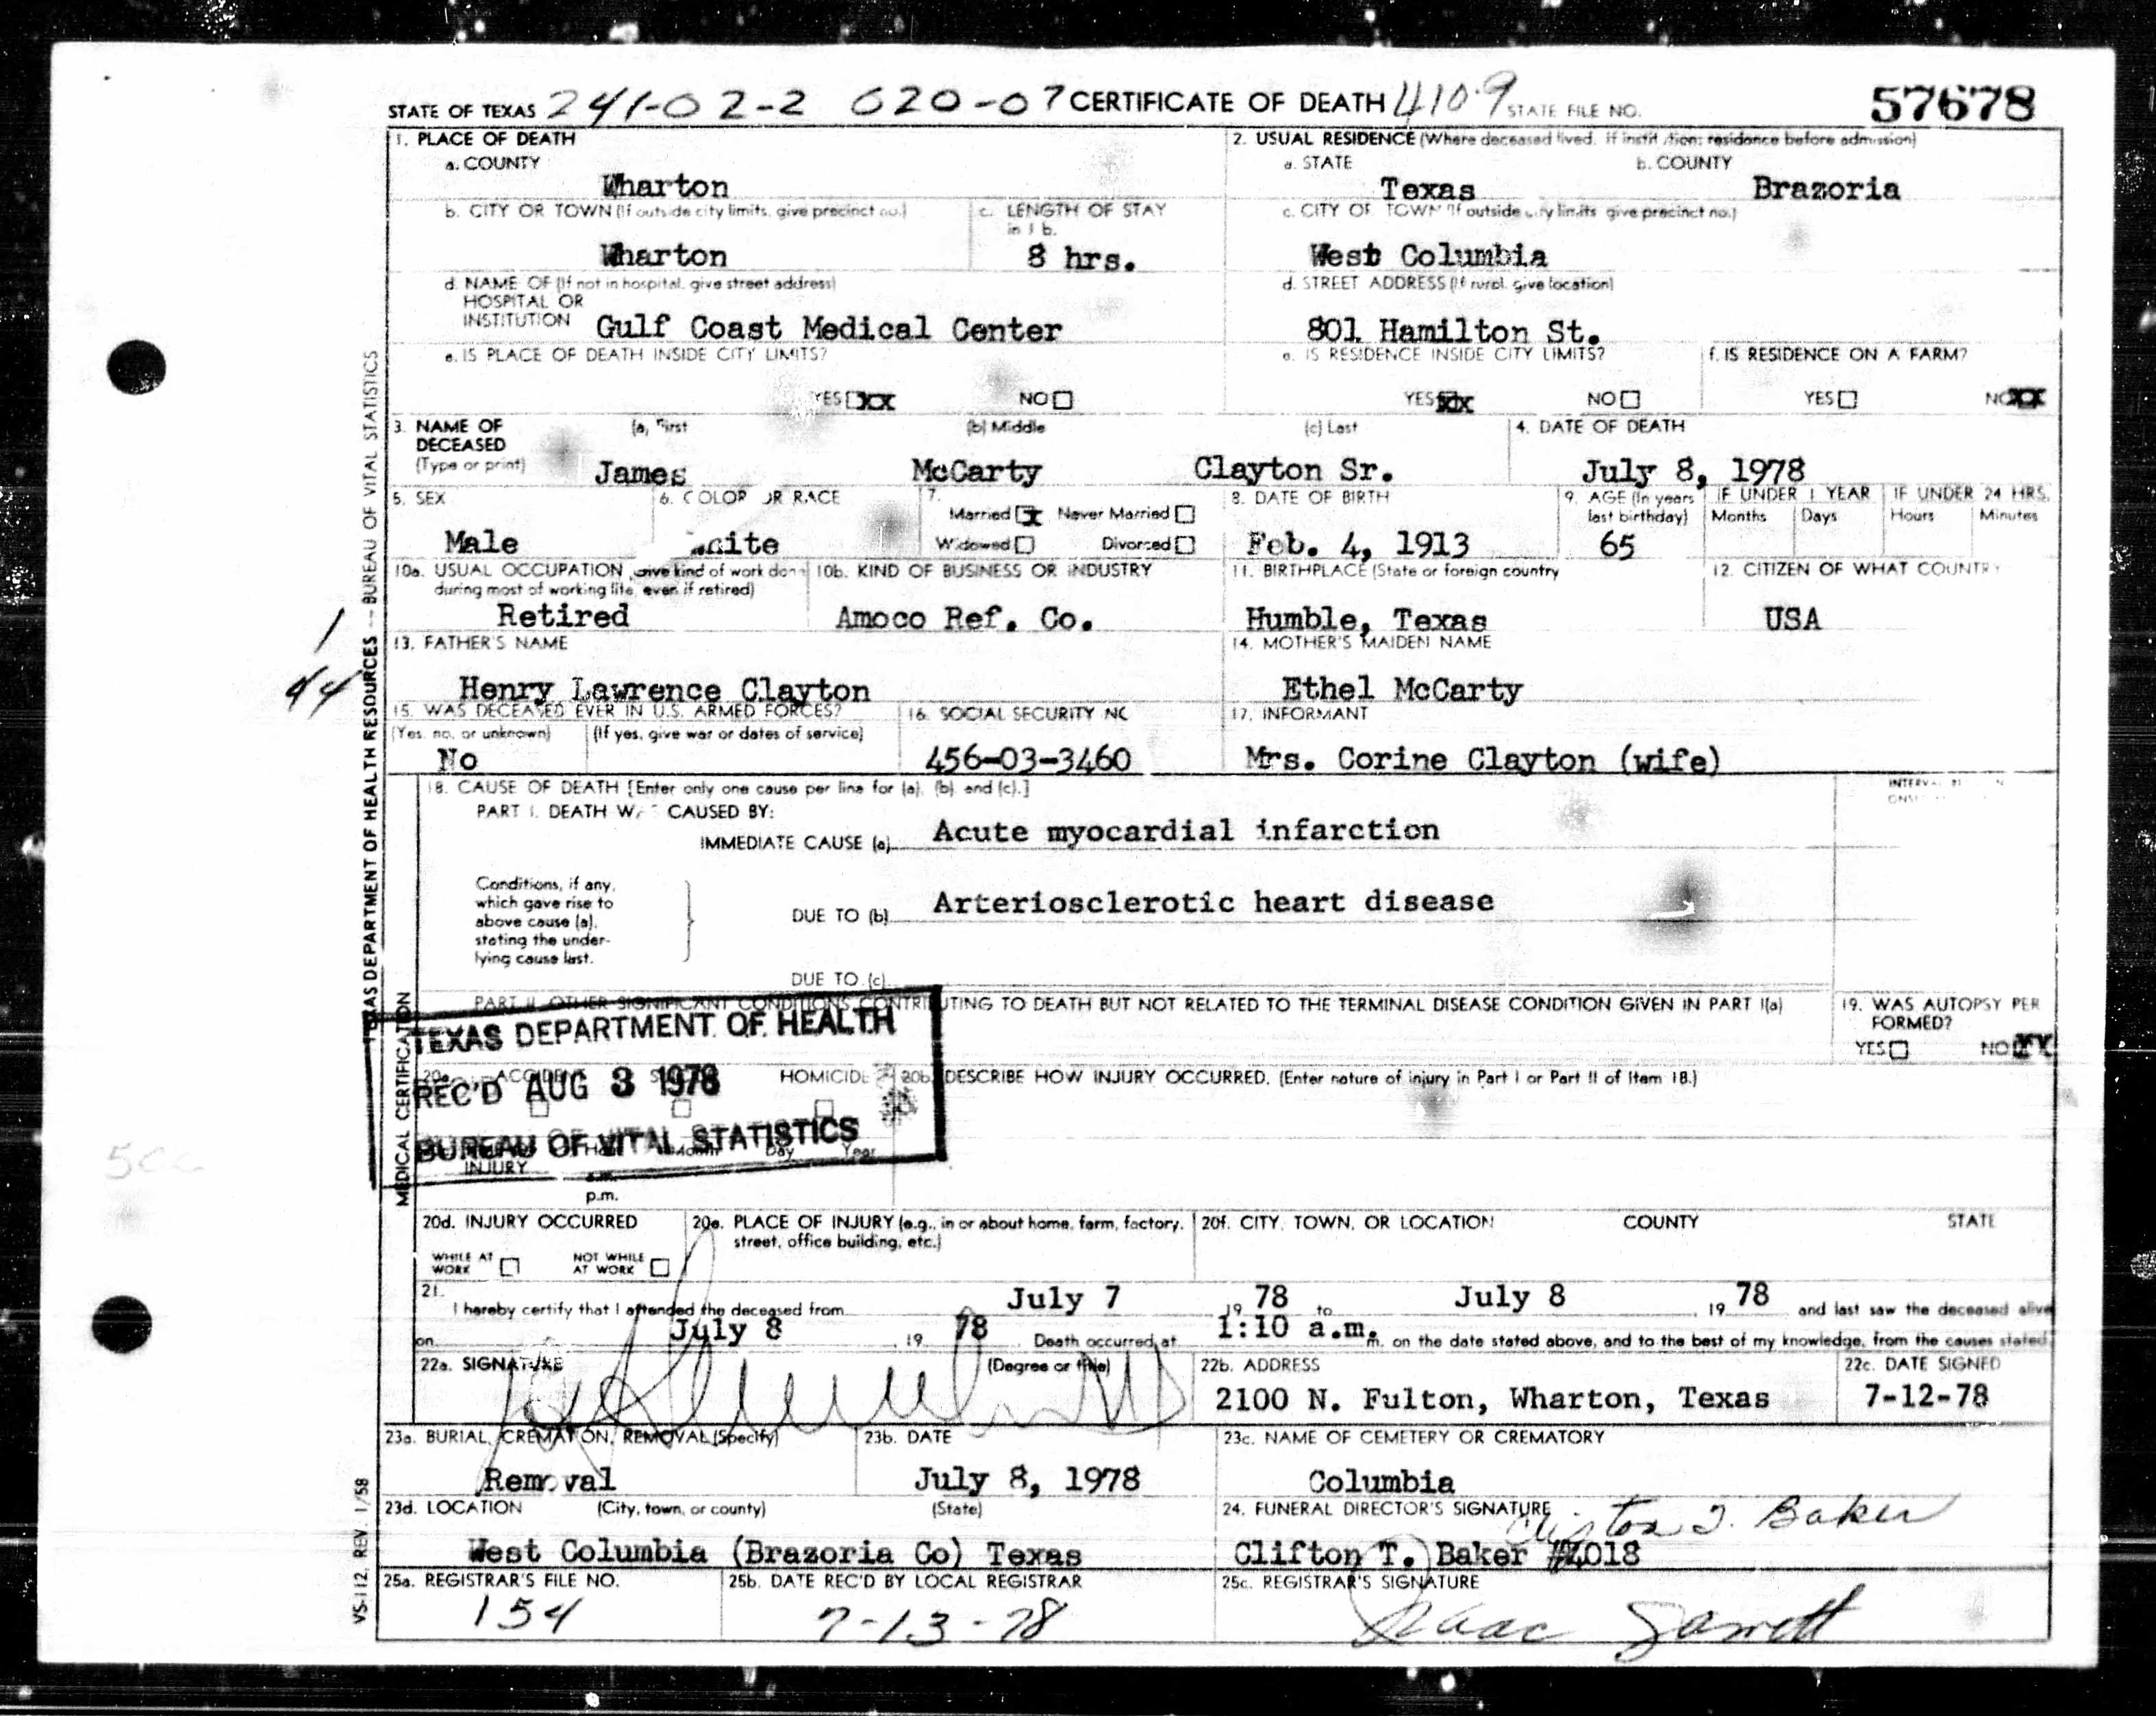 STATE OF TEXAS 241-02-2 620-07 CERTIFICATE OF DEATH 410.9 STATE FILE NO. 57678
1. PLACE OF DEATH
a. COUNTY
Wharton
2. USUAL RESIDENCE (Where deceased lived. If institution: residence before admission)
a. STATE b. COUNTY
Texas Brazoria
b. CITY OR TOWN (If outside city limits, give precinct no.) c. LENGTH OF STAY in 1 b.
Wharton 8 hrs.
c. CITY OR TOWN (If outside city limits give precinct no.)
West Columbia
d. NAME OF (If not in hospital, give street address)
HOSPITAL OR
INSTITUTION Gulf Coast Medical Center
d. STREET ADDRESS (If rural, give location)
801 Hamilton St.
e. IS PLACE OF DEATH INSIDE CITY LIMITS?
YES XX NO
e. IS RESIDENCE INSIDE CITY LIMITS? f. IS RESIDENCE ON A FARM?
YES XX NO YES NO XX
3. NAME OF DECEASED (Type or print) (a) First (b) Middle (c) Last 4. DATE OF DEATH
James McCarty Clayton Sr. July 8, 1978
5. SEX 6. COLOR OR RACE 7. 8. DATE OF BIRTH 9. AGE (In years last birthday) IF UNDER 1 YEAR IF UNDER 24 HRS.
Married X Never Married Months Days Hours Minutes
Widowed Divorced
Male White Feb. 4, 1913 65
10a. USUAL OCCUPATION (Give kind of work done during most of working life, even if retired) 10b. KIND OF BUSINESS OR INDUSTRY 11. BIRTHPLACE (State or foreign country 12. CITIZEN OF WHAT COUNTRY
Retired Amoco Ref. Co. Humble, Texas USA
13. FATHER'S NAME 14. MOTHER'S MAIDEN NAME
Henry Lawrence Clayton Ethel McCarty
15. WAS DECEASED EVER IN U.S. ARMED FORCES? 16. SOCIAL SECURITY NO 17. INFORMANT
(Yes, no, or unknown) (If yes, give war or dates of service)
No 456-03-3460 Mrs. Corine Clayton (wife)
18. CAUSE OF DEATH [Enter only one cause per line for (a), (b) and (c).]
PART I. DEATH WAS CAUSED BY:
IMMEDIATE CAUSE (a) Acute myocardial infarction
Conditions, if any,
which gave rise to
above cause (a),
stating the under-
lying cause last.
DUE TO (b) Arteriosclerotic heart disease
DUE TO (c)
PART II. OTHER SIGNIFICANT CONDITIONS CONTRIBUTING TO DEATH BUT NOT RELATED TO THE TERMINAL DISEASE CONDITION GIVEN IN PART I(a)
19. WAS AUTOPSY PER
FORMED?
YES NO XX
TEXAS DEPARTMENT OF HEALTH
REC'D AUG 3 1978
BUREAU OF VITAL STATISTICS
20a. ACCIDENT HOMICIDE 20b. DESCRIBE HOW INJURY OCCURRED. (Enter nature of injury in Part I or Part II of Item 18.)
INJURY Hour Month Day Year
a.m.
p.m.
20d. INJURY OCCURRED 20e. PLACE OF INJURY (e.g., in or about home, farm, factory, street, office building, etc.) 20f. CITY, TOWN, OR LOCATION COUNTY STATE
WHILE AT WORK NOT WHILE AT WORK
21.
I hereby certify that I attended the deceased from July 7 19 78 to July 8 , 19 78 and last saw the deceased alive
on July 8 , 19 78 . Death occurred at 1:10 a.m. m. on the date stated above, and to the best of my knowledge, from the causes stated.
22a. SIGNATURE (Degree or title) 22b. ADDRESS 22c. DATE SIGNED
2100 N. Fulton, Wharton, Texas 7-12-78
23a. BURIAL, CREMATION, REMOVAL (Specify) 23b. DATE 23c. NAME OF CEMETERY OR CREMATORY
Removal July 8, 1978 Columbia
23d. LOCATION (City, town, or county) (State) 24. FUNERAL DIRECTOR'S SIGNATURE
Clifton T. Baker
West Columbia (Brazoria Co) Texas Clifton T. Baker #4018
25a. REGISTRAR'S FILE NO. 25b. DATE REC'D BY LOCAL REGISTRAR 25c. REGISTRAR'S SIGNATURE
154 7-13-78 Isaac Garrett
TEXAS DEPARTMENT OF HEALTH RESOURCES — BUREAU OF VITAL STATISTICS
MEDICAL CERTIFICATION
VS-112, REV. 1/58
1
44